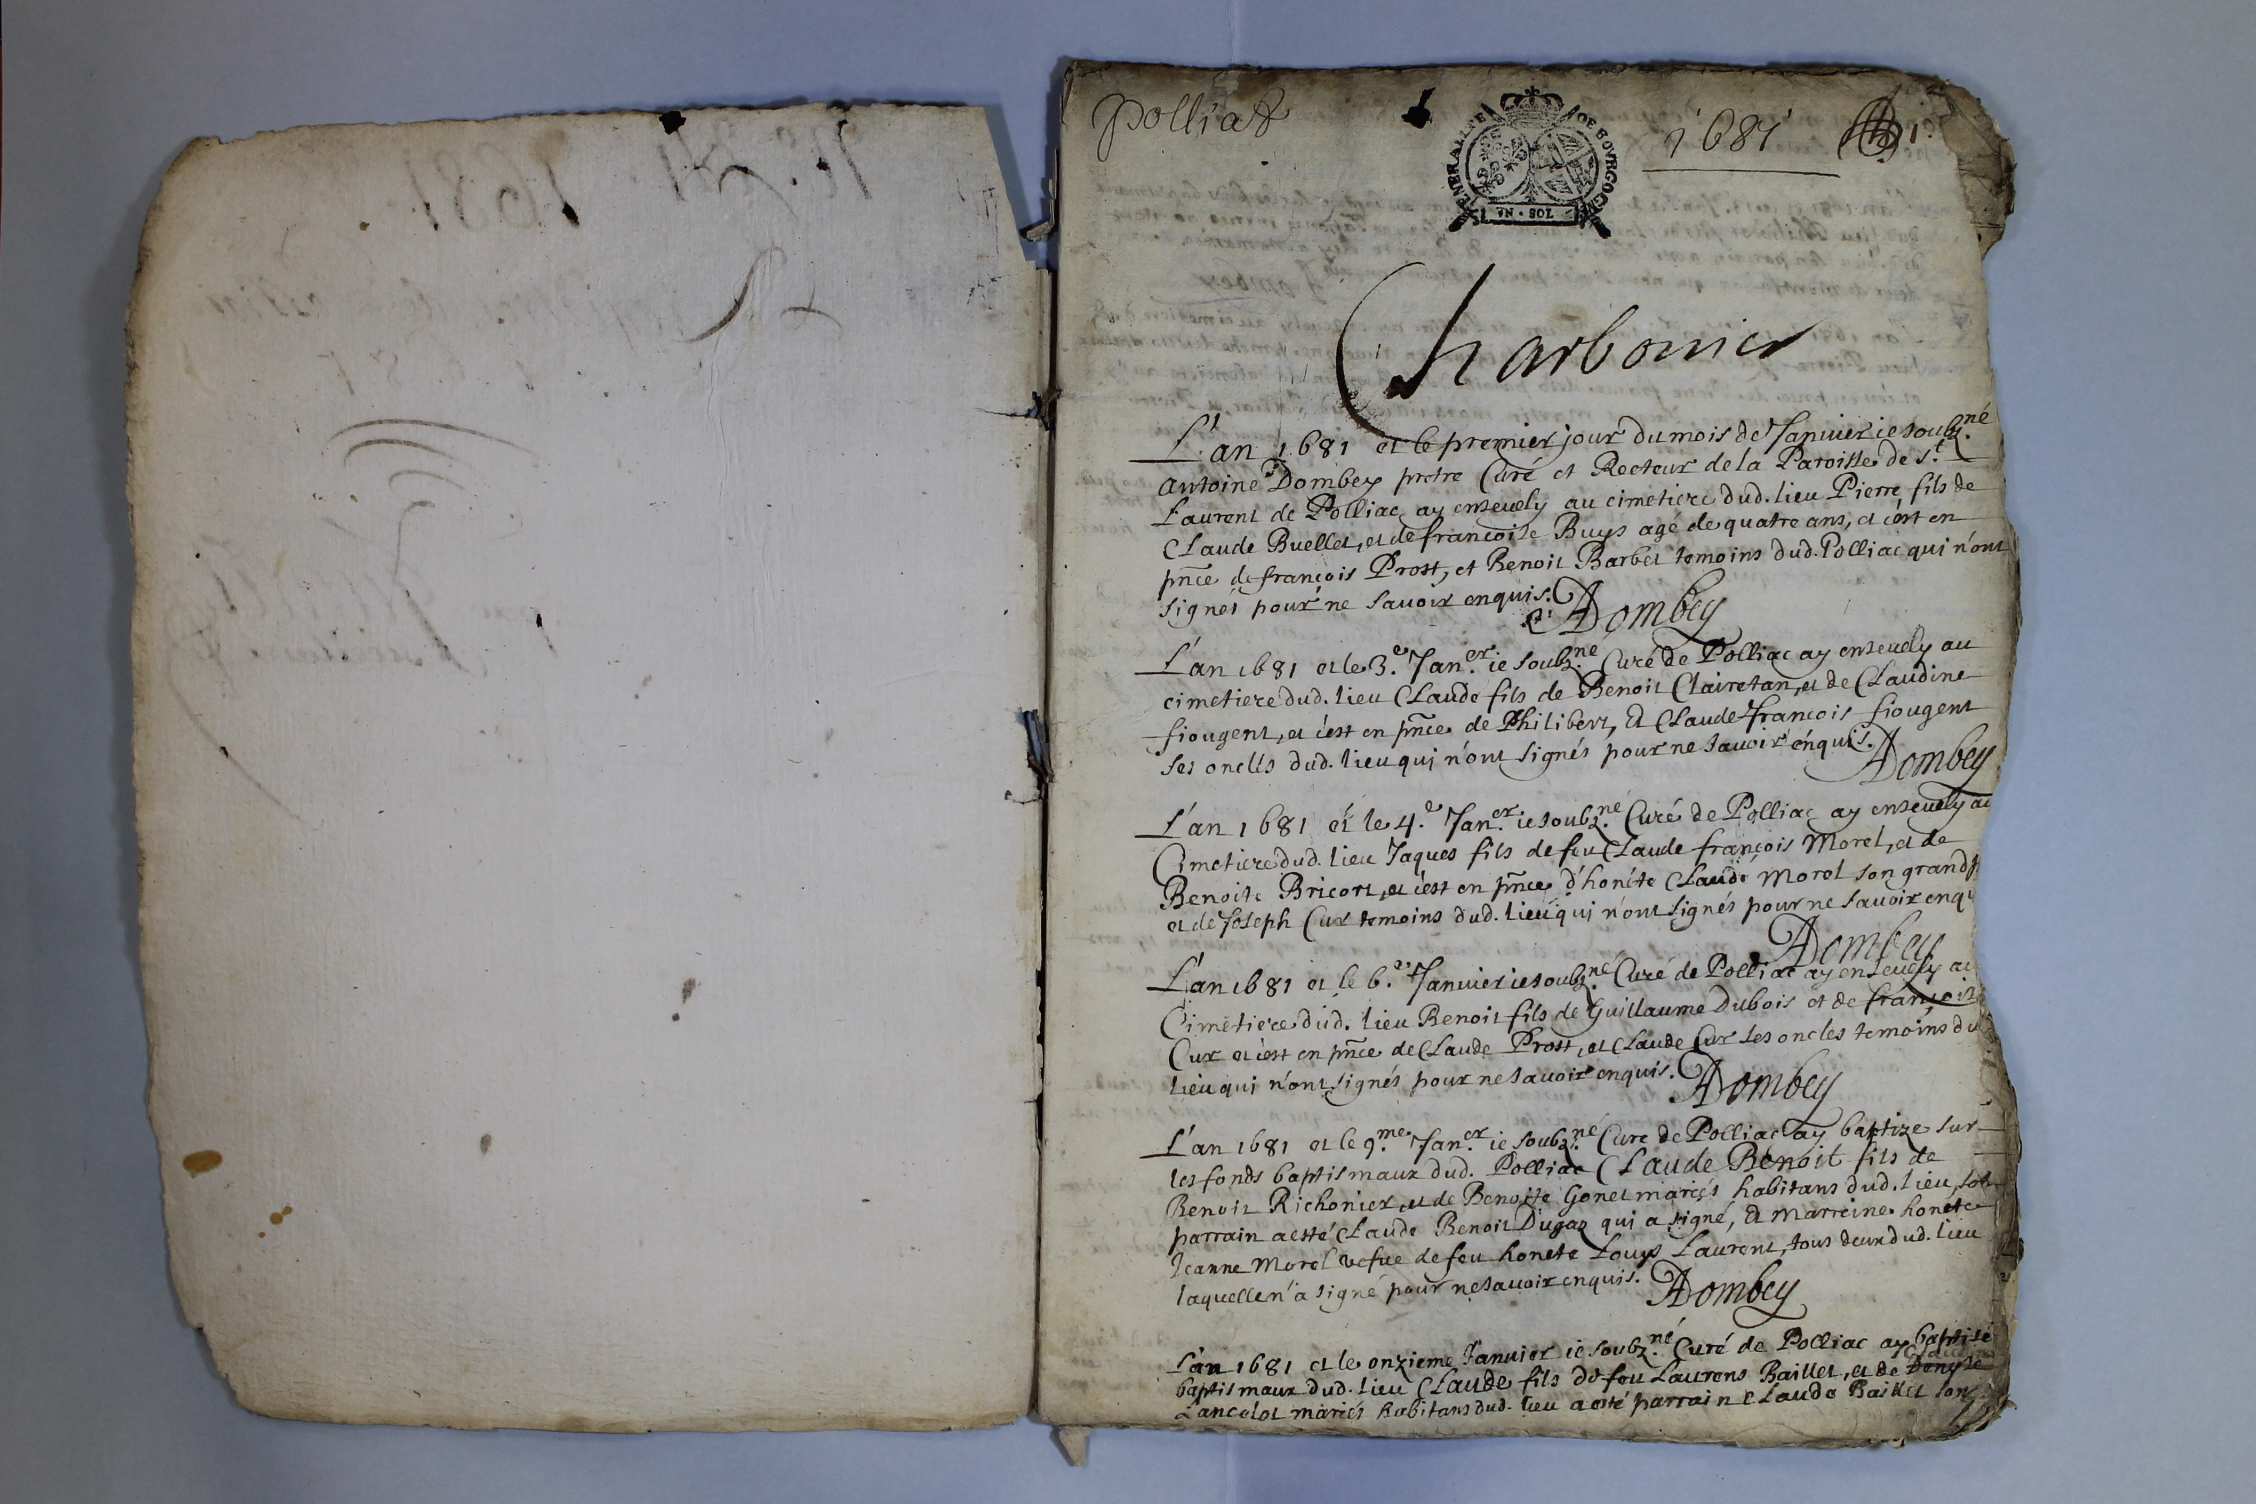 Polliat
1681
1.
GENERALITE DE BOVRGOGNE
VN · SOL
Charbonier
L'an 1681 et le premier jour du mois de Januier ie soubz.né
Antoine Dombey pretre Curé et Recteur de la Paroisse de s.t
Laurent de Polliac ay enseuely au cimetiere dud. lieu Pierre fils de
Claude Buellet, et de francoise Buys agé de quatre ans, et c'est en
pñce de françois Prost, et Benoit Barbet temoins dud. Polliac qui n'ont
signés pour ne sauoir enquis.
ADombey
L'an 1681 et le 3.e Jan.er ie soubz.né Curé de Polliac ay enseuely au
cimetiere dud. lieu Claude fils de Benoit Clairetan, et de Claudine
fiougent, et c'est en pñce de Philibert, Et Claude françois fiougent
ses oncles dud. lieu qui n'ont signés pour ne sauoir enquis.
ADombey
L'an 1681 et le 4.e Jan.er ie soubz.né Curé de Polliac ay enseuely au
Cimetiere dud. lieu Jaques fils de feu Claude françois Morel, et de
Benoite Bricort, et c'est en pñce d'honéte Claude Morel son grand
et de Joseph Cur temoins dud. lieu qui n'ont signés pour ne sauoir enqu
ADombey
L'an 1681 et le 6.e Januier ie soubz.né Curé de Polliac ay enseuely au
Cimetiere dud. lieu Benoit fils de Guillaume Dubois et de françoise
Cur et c'est en pñce de Claude Prost, et Claude Cur ses oncles temoins du
lieu qui n'ont signés pour ne sauoir enquis.
ADombey
L'an 1681 et le 9.me Jan.er ie soubz.né Curé de Polliac ay baptize sur
les fonds baptismaux dud. Polliac Claude Benoit fils de
Benoit Richonier, et de Benoite Gonet mariés habitans dud. lieu, son
parrain a esté Claude Benoit Dugaz qui a signé, Et marreine honete
Jeanne Morel vefue de feu honete Louys Laurent, tous deux dud. lieu
laquelle n'a signé pour ne sauoir enquis.
ADombey
L'an 1681 et le onzieme Januier ie soubz.né Curé de Polliac ay baptisé
baptismaux dud. lieu Claude fils de feu Laurens Baillet, et de Denyse
Lancelot mariés habitans dud. lieu a esté parrain Claude Baillet son